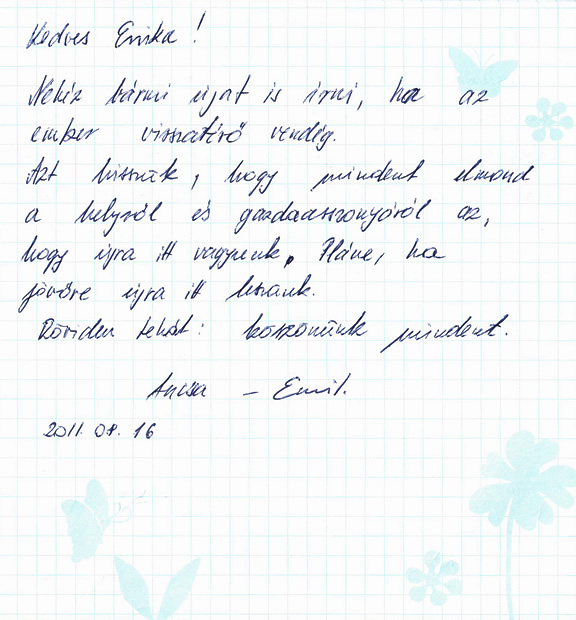 Kedves Erika!
Nehéz bármi újat is írni, ha az
ember visszatérő vendég.
Azt hisszük, hogy mindent elmond
a helyről és gazdaasszonyáról az,
hogy újra itt vagyunk. Pláne, ha
jövőre újra itt leszünk.
Röviden tehát: köszönünk mindent.
– Emil.
2011. 08. 16